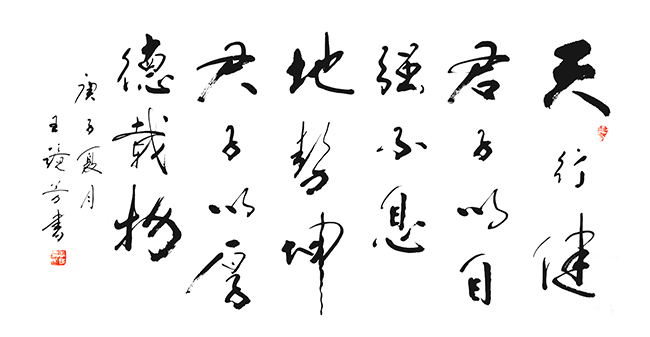 天行健
君子以自
強不息
地勢坤
君子以厚
德載物
庚子夏月
王芳書